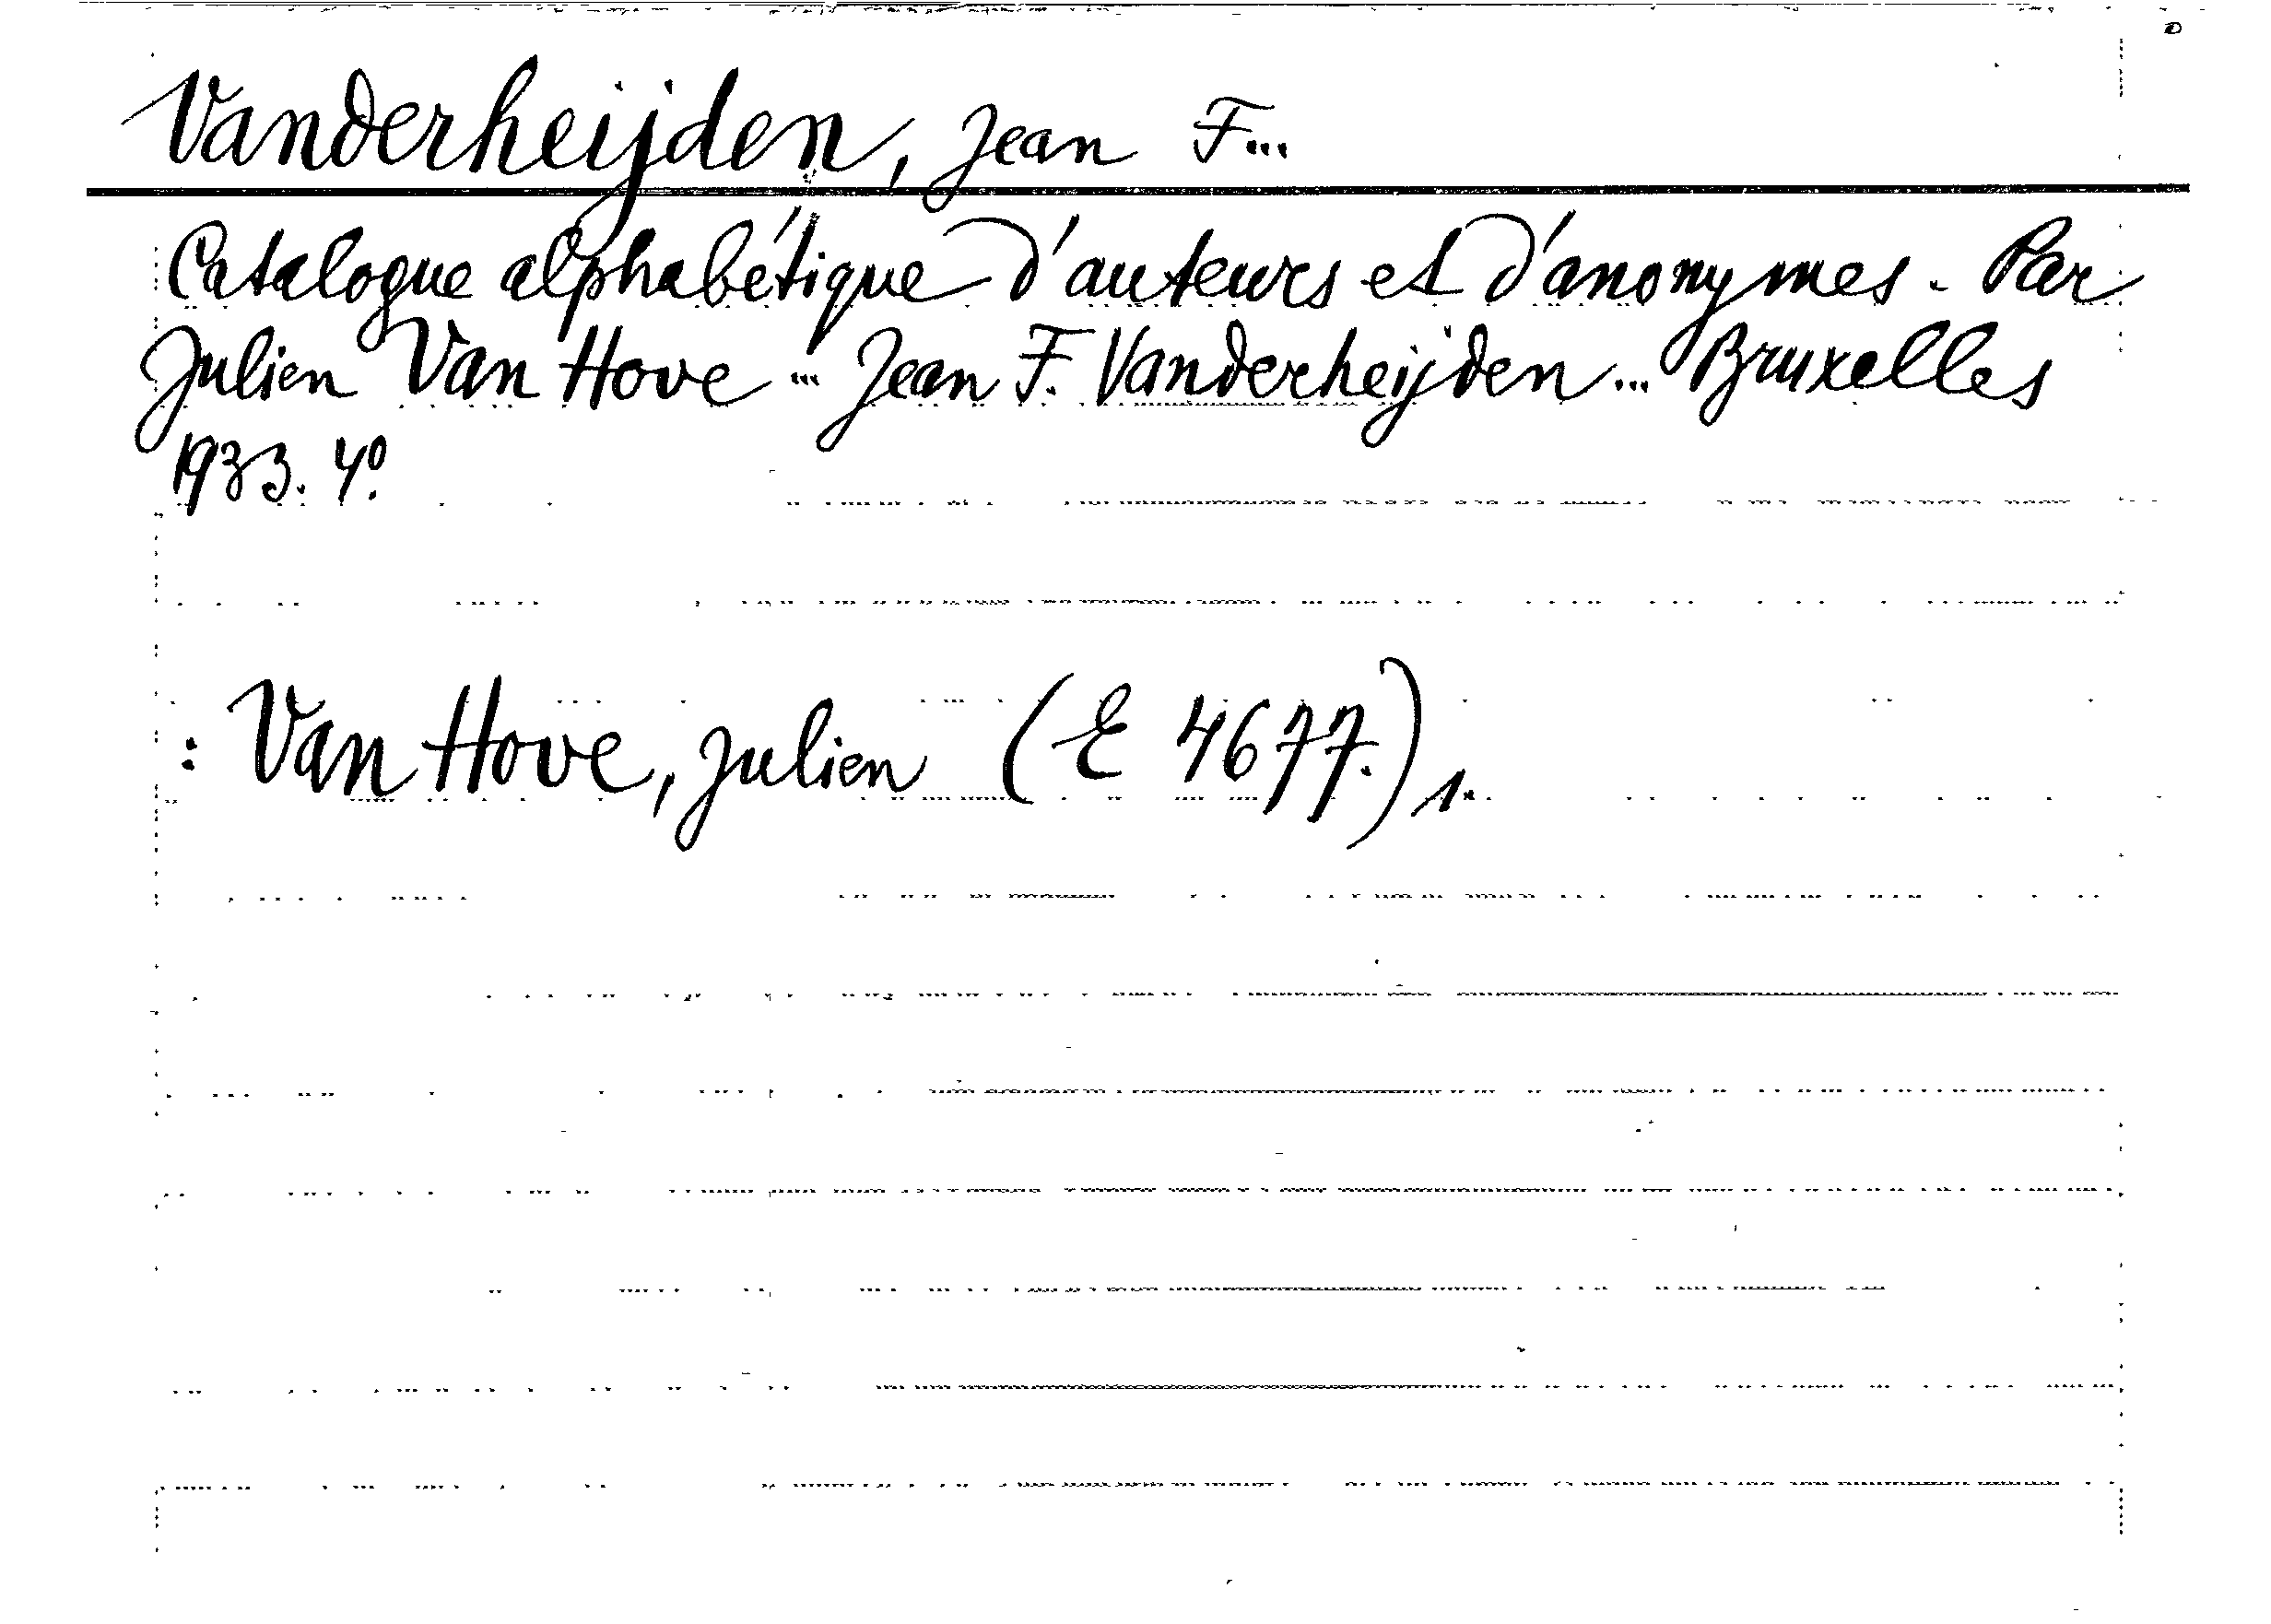 Vanderheijden, Jean F...
Catalogue alphabétique d'auteurs et d'anonymes. Par
Julien Van Hove ... Jean F. Vanderheijden ... Bruxelles
1933. 4º.
: Van Hove, Julien (E 4677.) 1.